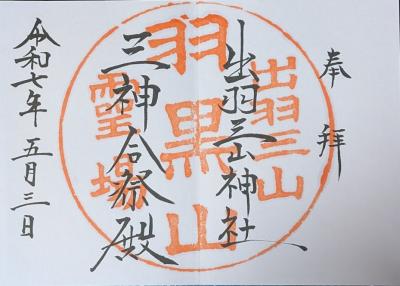 奉拝
出羽三山神社
三神合祭殿
令和七年五月三日
出羽三山
羽黒山
霊場